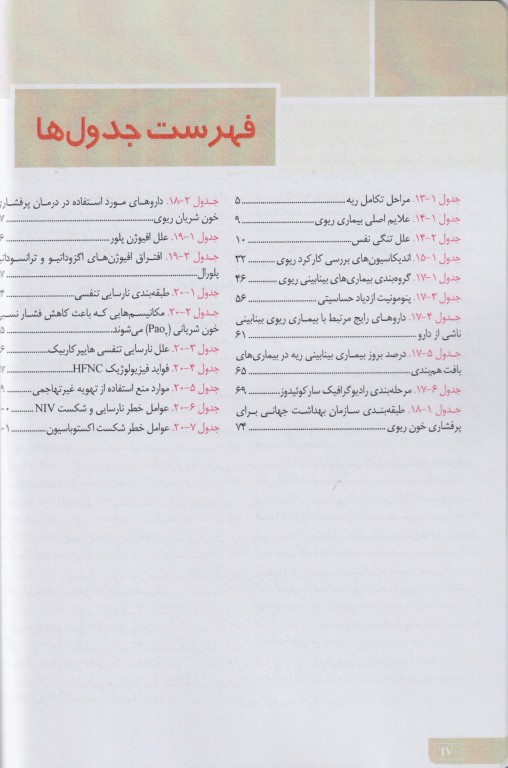 فهرست جدول‌ها
جدول ۱-۱۳. مراحل تکامل ریه ۵
جدول ۱-۱۴. علایم اصلی بیماری ریوی ۹
جدول ۲-۱۴. علل تنگی نفس ۱۰
جدول ۱-۱۵. اندیکاسیون‌های بررسی کارکرد ریوی ۳۲
جدول ۱-۱۷. گروه‌بندی بیماری‌های بینابینی ریوی ۴۶
جدول ۲-۱۷. پنومونیت ازدیاد حساسیتی ۵۶
جدول ۴-۱۷. داروهای رایج مرتبط با بیماری ریوی بینابینی
ناشی از دارو ۶۱
جدول ۵-۱۷. درصد بروز بیماری بینابینی ریه در بیماری‌های
بافت هم‌بندی ۶۵
جدول ۶-۱۷. مرحله‌بندی رادیوگرافیک سارکوئیدوز ۶۹
جدول ۱-۱۸. طبقه‌بندی سازمان بهداشت جهانی برای
پرفشاری خون ریوی ۷۴
جدول ۲-۱۸. داروهای مورد استفاده در درمان پرفشاری
خون شریان ریوی
جدول ۱-۱۹. علل افیوژن پلور
جدول ۲-۱۹. افتراق افیوژن‌های اگزوداتیو و
پلورال
جدول ۱-۲۰. طبقه‌بندی نارسایی تنفسی
جدول ۲-۲۰. مکانیسم‌هایی که باعث کاهش فشار
خون شریانی (Pao₂) می‌شوند
جدول ۳-۲۰. علل نارسایی تنفسی هایپرکاربیک
جدول ۴-۲۰. فواید فیزیولوژیک HFNC
جدول ۵-۲۰. موارد منع استفاده از تهویه غیرتهاجمی
جدول ۶-۲۰. عوامل خطر نارسایی و شکست NIV
جدول ۷-۲۰. عوامل خطر شکست اکستوباسیون
۱۷